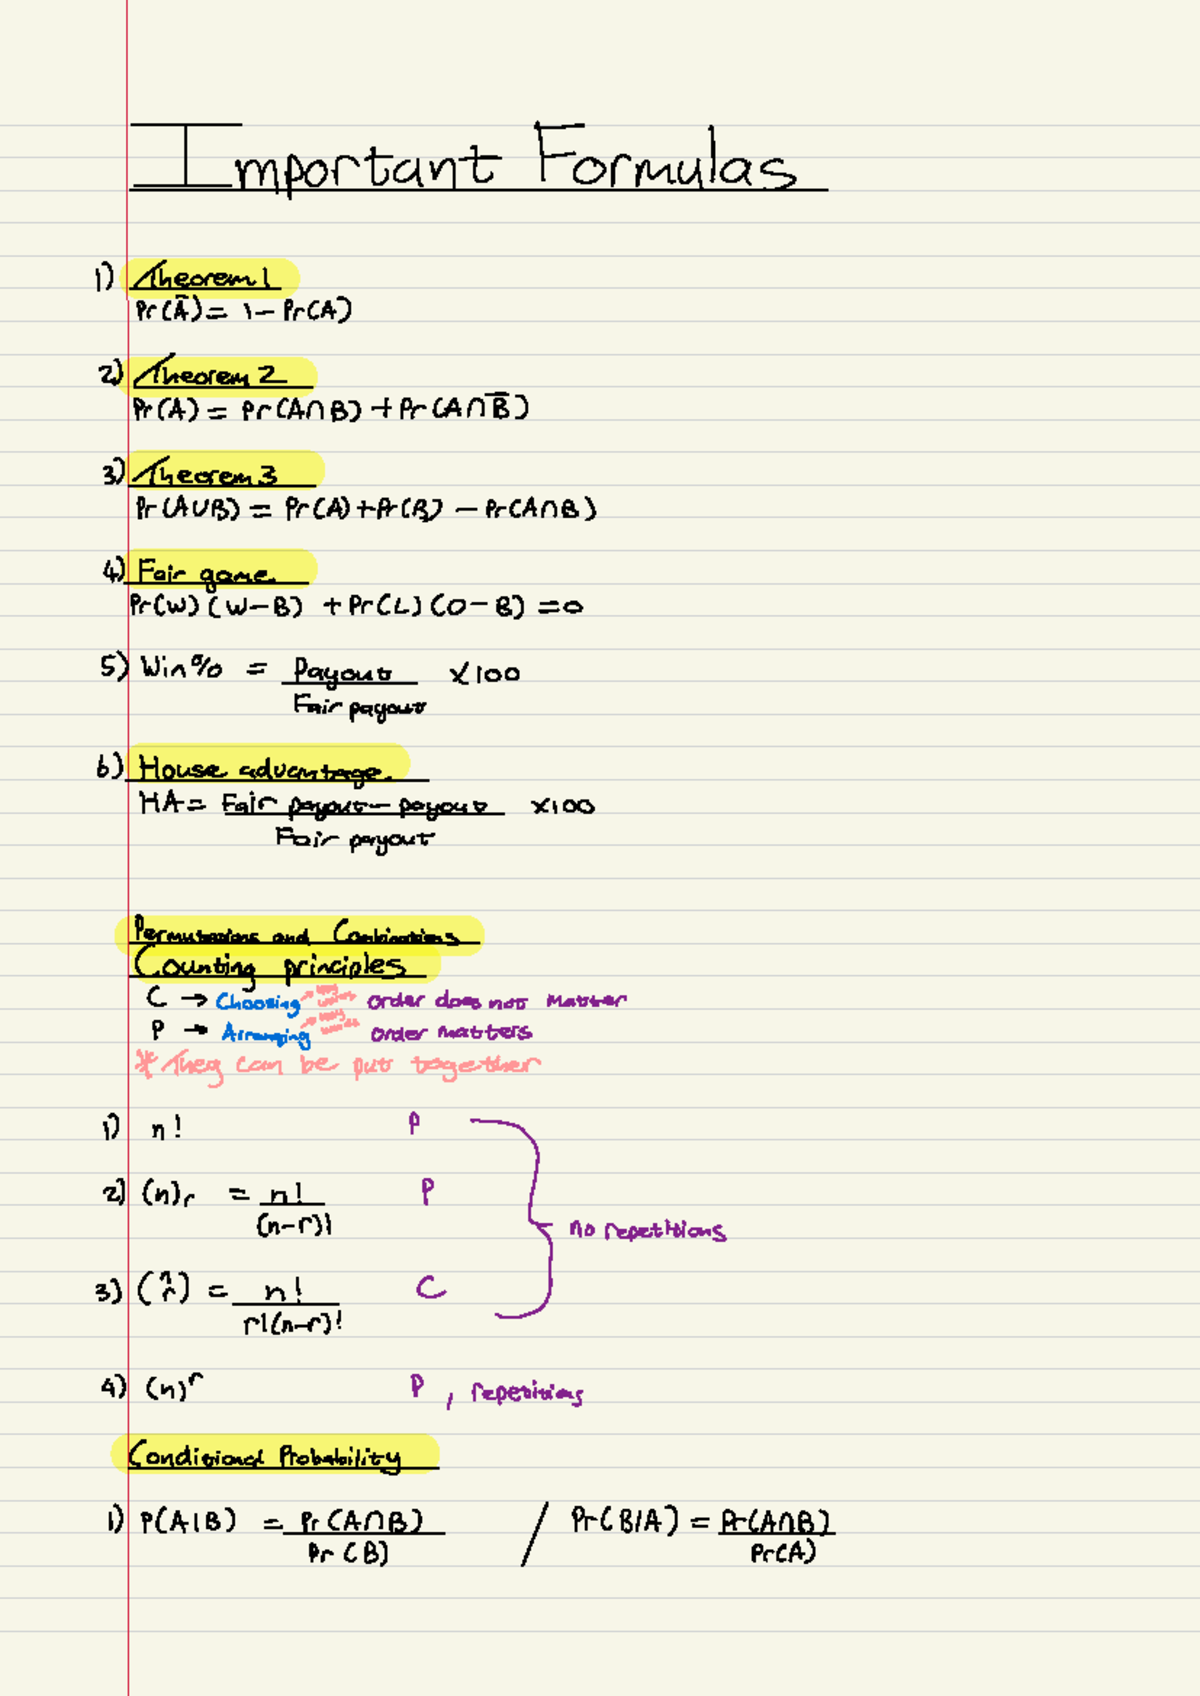 Important Formulas
1) Theorem 1
Pr(Ā) = 1 - Pr(A)
2) Theorem 2
Pr(A) = Pr(A∩B) + Pr(A∩B̅)
3) Theorem 3
Pr(A∪B) = Pr(A) + Pr(B) - Pr(A∩B)
4) Fair game
Pr(W) (W-B) + Pr(L) (0-B) = 0
5) Win% = Payout / Fair payout ×100
6) House advantage
HA = Fair payout - payout / Fair payout ×100
Permutations and Combinations
Counting principles
C → Choosing → order does not matter
P → Arranging → order matters
* They can be put together
1) n! P
2) (n)r = n! / (n-r)! P
no repetitions
3) (n r) = n! / r!(n-r)! C
4) (n)^r P, repetitions
Conditional Probability
1) P(A|B) = Pr(A∩B) / Pr(B) / Pr(B|A) = Pr(A∩B) / Pr(A)